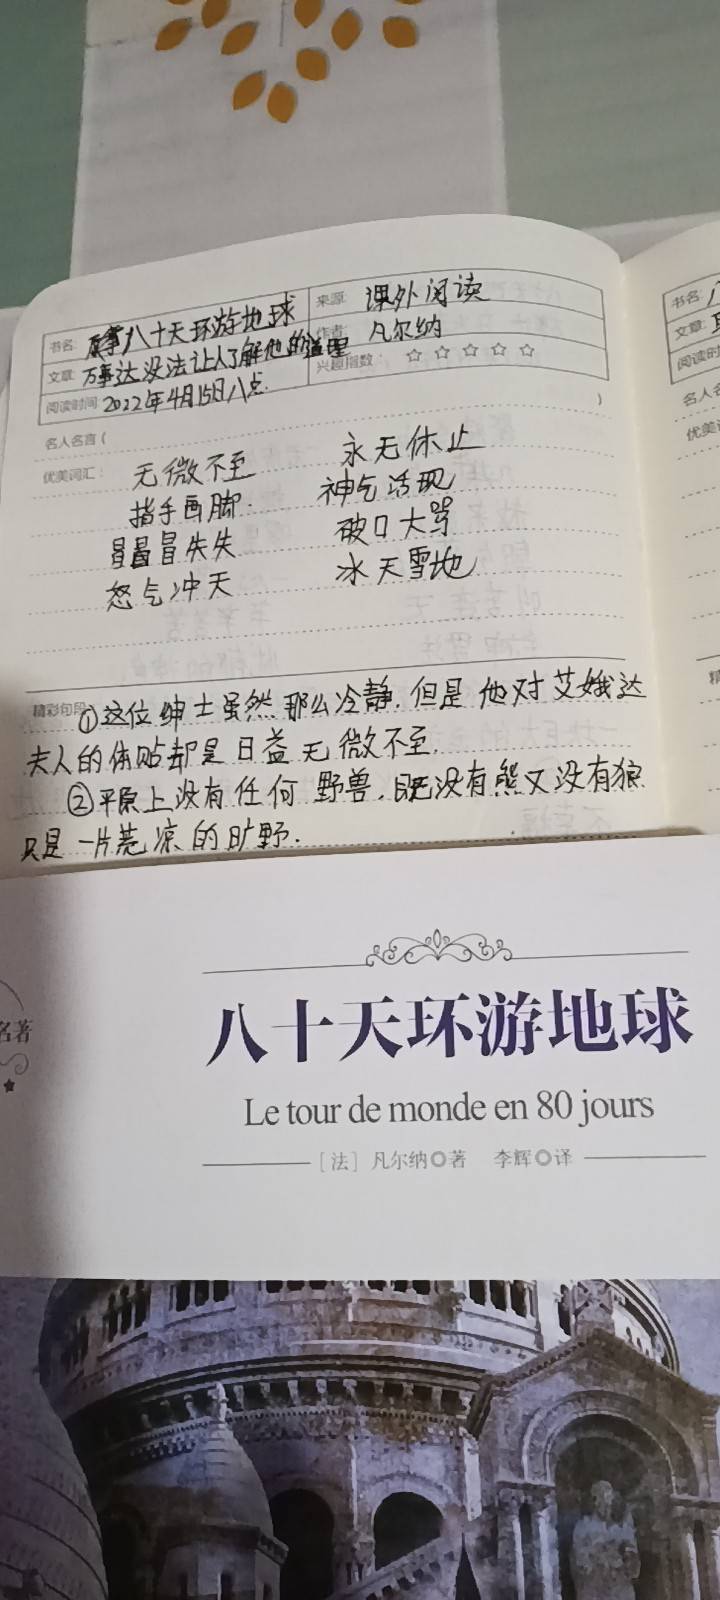 书名: 八十天环游地球
来源: 课外阅读
作者: 凡尔纳
文章: 万事达没法让人了解他的道理
兴趣指数: ☆ ☆ ☆ ☆ ☆
阅读时间: 2022年4月15日八点
名人名言 ( )
优美词汇: 无微不至 永无休止
指手画脚. 神气活现
冒冒失失 破口大骂
怒气冲天 冰天雪地
精彩句段: ①这位绅士虽然那么冷静.但是他对艾娥达
夫人的体贴却是日益无微不至.
②平原上没有任何野兽.既没有熊又没有狼
只是一片荒凉的旷野.
书名:
文章:
阅读时
名人名
优美词
精
名著
八十天环游地球
Le tour de monde en 80 jours
［法］凡尔纳◎著 李辉◎译